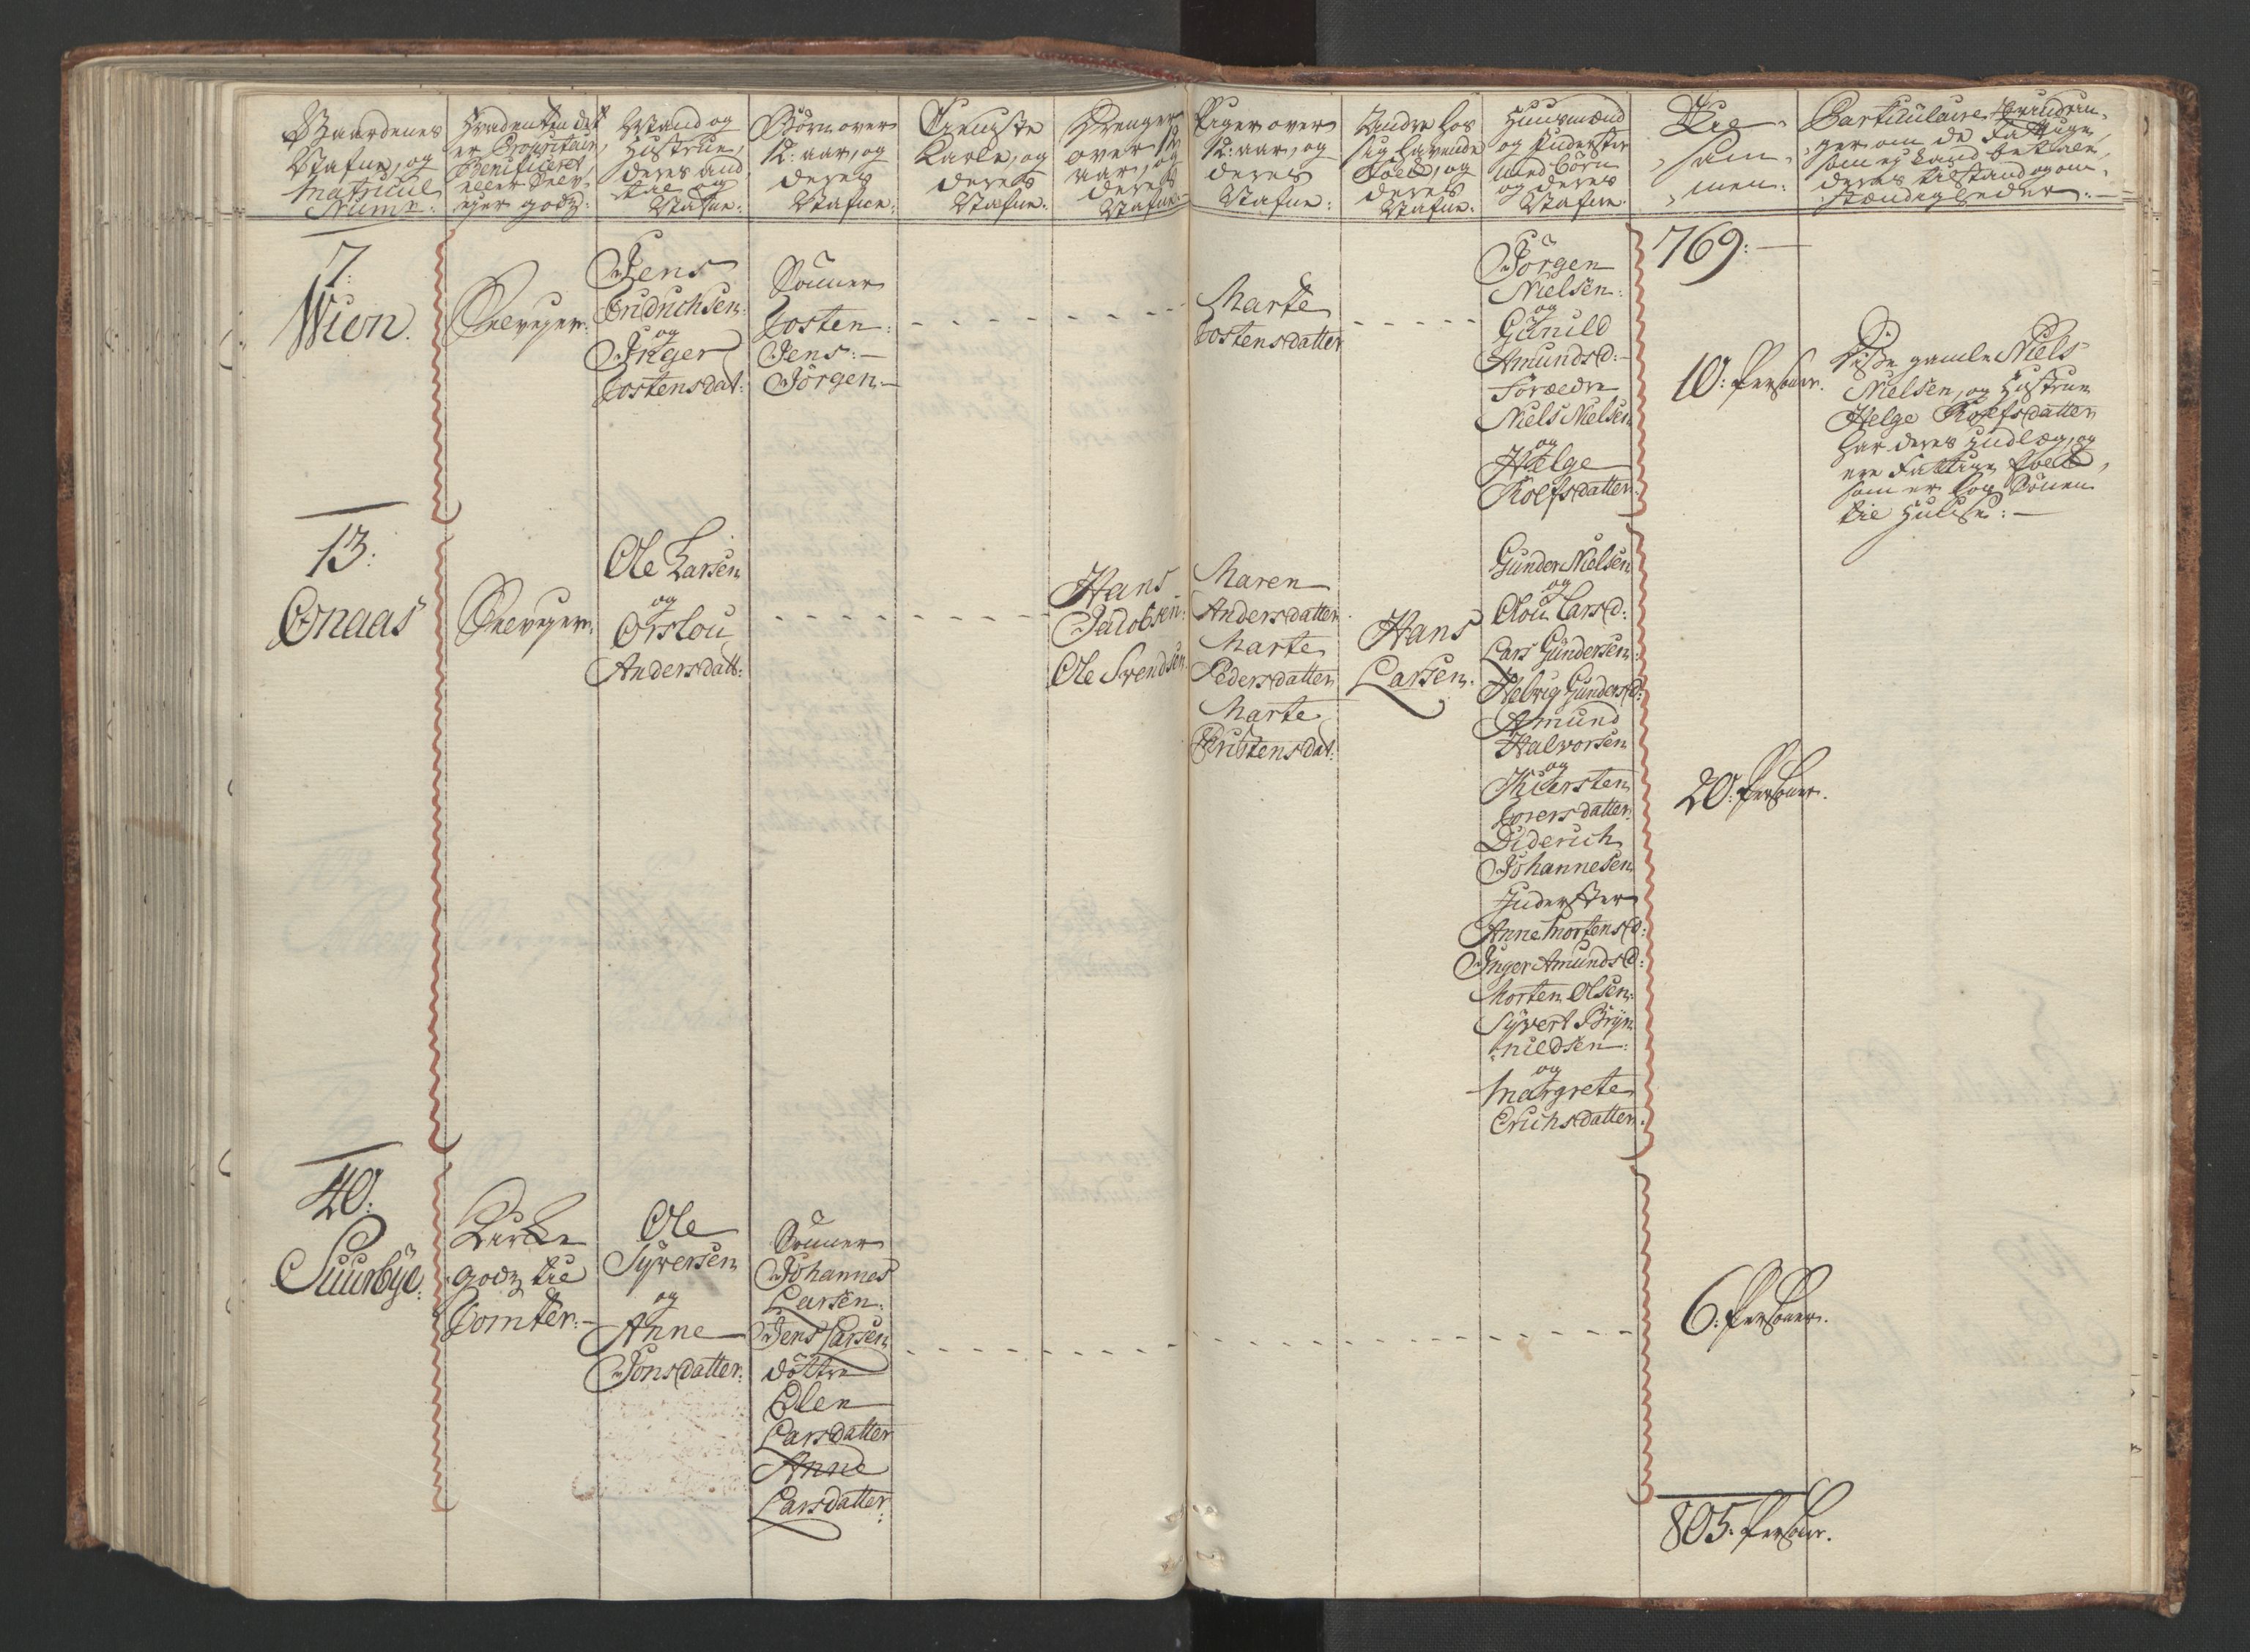 Gaardenes
Nafne, og
Matricul
Num̄r:
Hvad enten det
er Propritair,
Benificeret,
eller Selv-
ejer godz:
Mand og
Hustrue,
deres and
tal og
Nafne:
Børn over
12: aar, og
deres
Nafne:
Tieniste
Karle, og
deres
Nafne:
Drenger
over 12
aar, og
deres
Nafne:
Piger over
12: aar, og
deres
Nafne:
Andre hos
sig havende
Folck, og
deres
Nafne:
Huusmænd
og Inderster
med Børn
og deres
Nafne
Til-
sam-
men:
Particulaire
ger om de Fattige,
som ej kand betale,
deres tilstand og om-
stændigheder:
7:
Wien.
Selvejer:
Jens
Endrichsen
og
Inger
Tostensdat:
Sønner
Tosten:
Jens:
Jørgen
Marte
Tostensdatter
Jørgen
Nielsen:
og
Gunild
Amundsd:
Forældre
Niels Nielsen
og
Helge
Rolfsdatter
769:
10: Personer.
Disse gamle Niels
Nielsen, og Hustrue
Helge Rolfsdatter
har deres indlæg, og
ere Fattige Folck,
som er hos Sønnen
til Huuse:
13:
Onaas
Selvejer:
Ole Larsen
og
Orslou
Andersdatt:
Hans
Jacobsen:
Ole Svendsen
Maren
Andersdatter
Marte
Pedersdatter
Marte
Christensdat:
Hans
Larsen:
Gunder Nielsen
og
Olou Larsd:
Lars Gundersen:
Helvig Gundersd:
Amund
Halvorsen
og
Kiersten
Torersdatter:
Diderich
Johannesen
Inderster
Anne Mortensd:
Inger Amundsd:
Morten Olsen:
Syvert Bryn-
nildsen:
og
Margrete
Erichsdatter:
20: Personer.
40:
Suurbye:
Kirke
godz til
Tomter:
Ole
Syversen
og
Anne
Jonsdatter:
Sønner
Johannes
Larsen:
Jens Larsen
døttre
Elen
Larsdatter
Anne
Larsdatter:
6: Personer.
805: Personer.